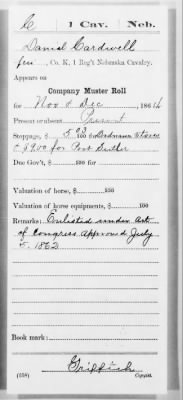 C 1 Cav. Neb.
Daniel Cardwell
, Co. K, 1 Reg't Nebraska Cavalry.
Appears on
Company Muster Roll
for Nov & Dec, 1864
Present or absent Present
Stoppage, $ 5 93/100 for Ordnance
& $9.00 for Post Sutler
Due Gov't, $ /100 for
Valuation of horse, $ /100
Valuation of horse equipments, $ /100
Remarks: Enlisted under Act
of Congress approved July
1862
Book mark:
Griffith
(358) Copyist.